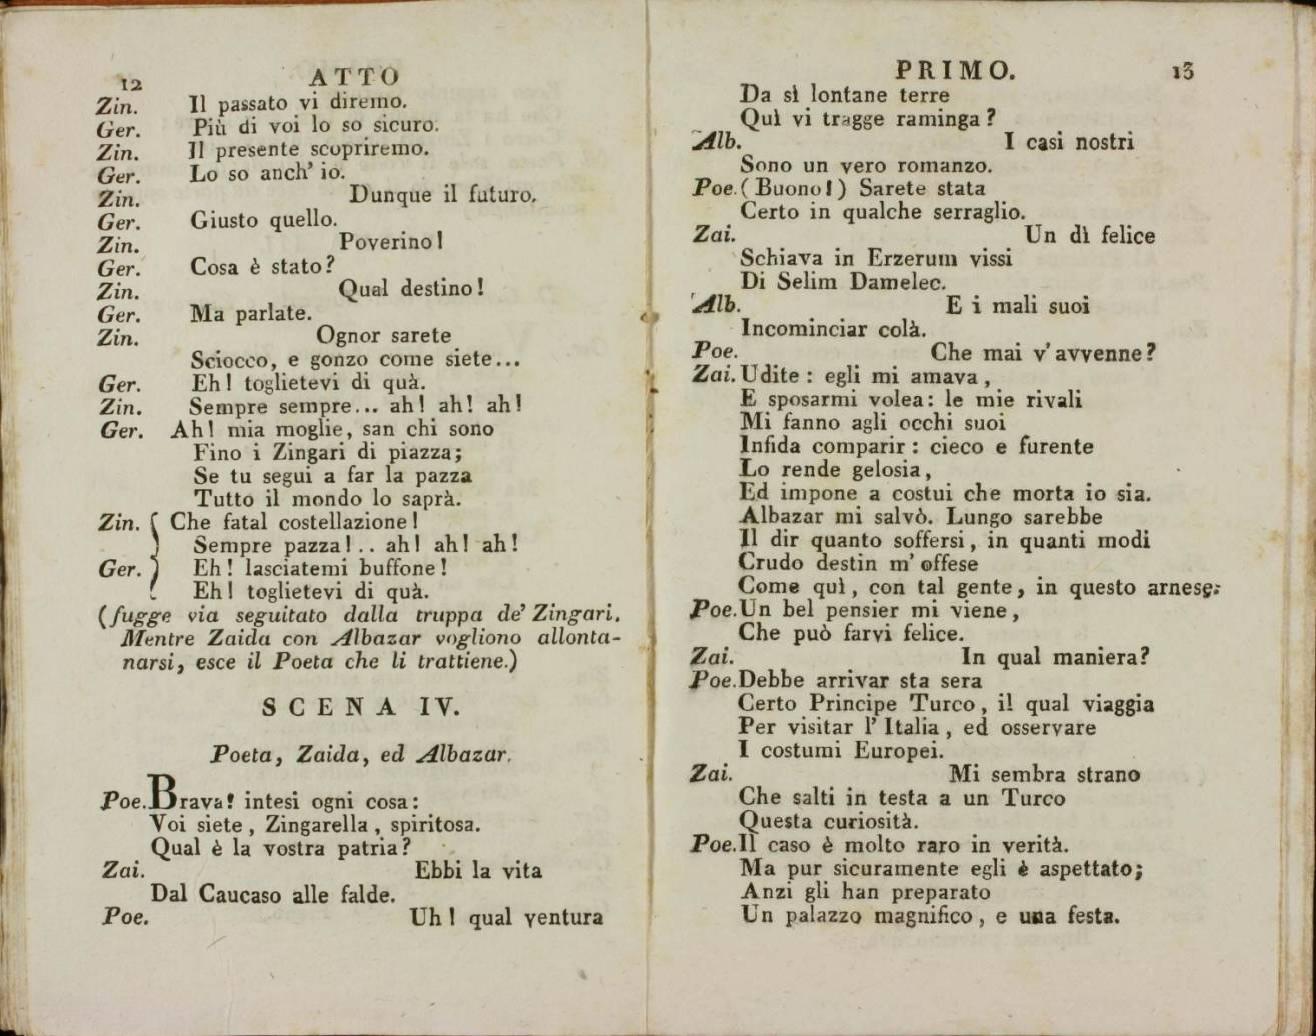 12 ATTO
Zin. Il passato vi diremo.
Ger. Più di voi lo so sicuro.
Zin. Il presente scopriremo.
Ger. Lo so anch' io.
Zin. Dunque il futuro.
Ger. Giusto quello.
Zin. Poverino!
Ger. Cosa è stato?
Zin. Qual destino!
Ger. Ma parlate.
Zin. Ognor sarete
Sciocco, e gonzo come siete...
Ger. Eh! toglietevi di quà.
Zin. Sempre sempre... ah! ah! ah!
Ger. Ah! mia moglie, san chi sono
Fino i Zingari di piazza;
Se tu segui a far la pazza
Tutto il mondo lo saprà.
Zin. { Che fatal costellazione!
Sempre pazza!.. ah! ah! ah!
Ger. } Eh! lasciatemi buffone!
Eh! toglietevi di quà.
(fugge via seguitato dalla truppa de' Zingari.
Mentre Zaida con Albazar vogliono allonta-
narsi, esce il Poeta che li trattiene.)
SCENA IV.
Poeta, Zaida, ed Albazar.
Poe. Brava! intesi ogni cosa:
Voi siete, Zingarella, spiritosa.
Qual è la vostra patria?
Zai. Ebbi la vita
Dal Caucaso alle falde.
Poe. Uh! qual ventura
PRIMO. 13
Da sì lontane terre
Quì vi tragge raminga?
Alb. I casi nostri
Sono un vero romanzo.
Poe. (Buono!) Sarete stata
Certo in qualche serraglio.
Zai. Un dì felice
Schiava in Erzerum vissi
Di Selim Damelec.
Alb. E i mali suoi
Incominciar colà.
Poe. Che mai v' avvenne?
Zai. Udite: egli mi amava,
E sposarmi volea: le mie rivali
Mi fanno agli occhi suoi
Infida comparir: cieco e furente
Lo rende gelosia,
Ed impone a costui che morta io sia.
Albazar mi salvò. Lungo sarebbe
Il dir quanto soffersi, in quanti modi
Crudo destin m' offese
Come quì, con tal gente, in questo arnese;
Poe. Un bel pensier mi viene,
Che può farvi felice.
Zai. In qual maniera?
Poe. Debbe arrivar sta sera
Certo Principe Turco, il qual viaggia
Per visitar l' Italia, ed osservare
I costumi Europei.
Zai. Mi sembra strano
Che salti in testa a un Turco
Questa curiosità.
Poe. Il caso è molto raro in verità.
Ma pur sicuramente egli è aspettato;
Anzi gli han preparato
Un palazzo magnifico, e una festa.